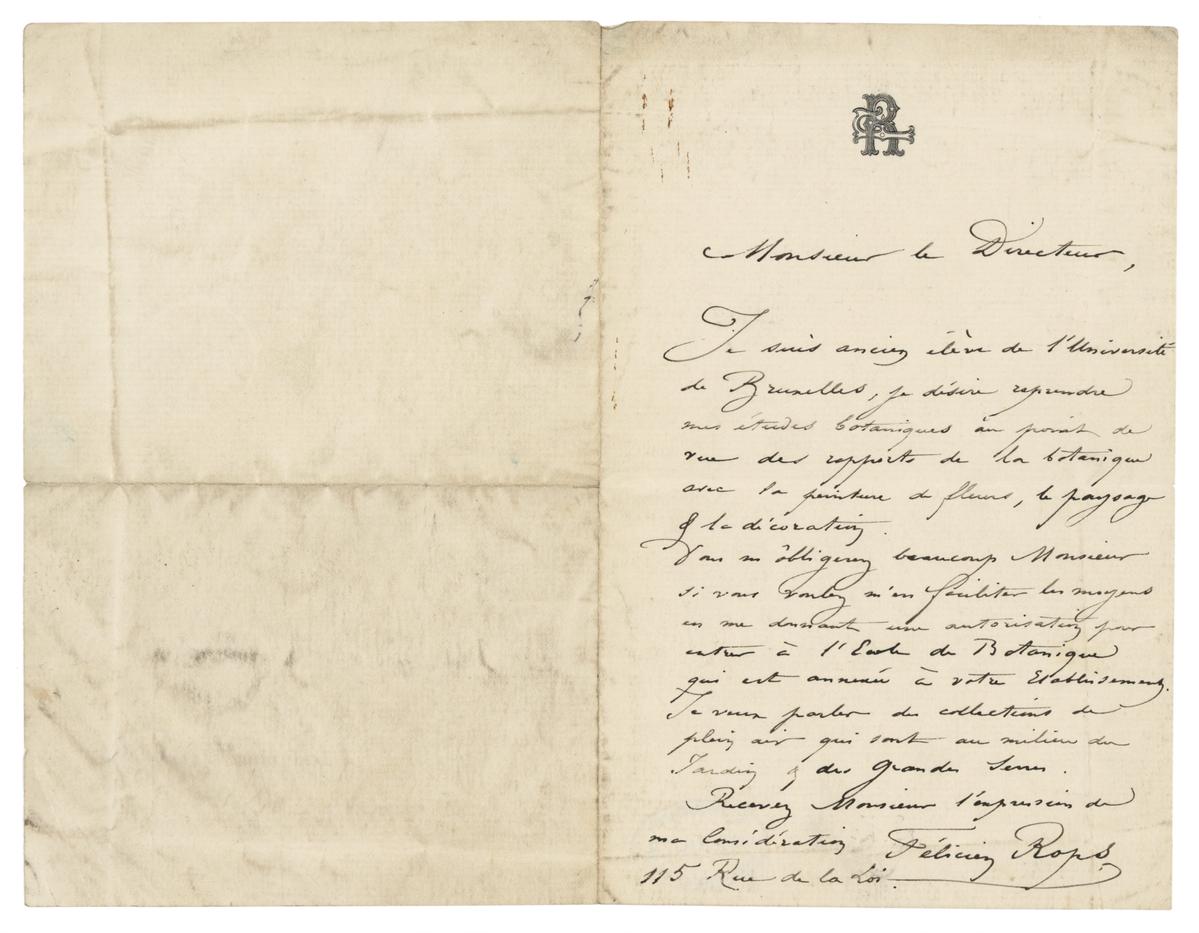 Monsieur le Directeur,
Je suis ancien élève de l'Université
de Bruxelles, je désire reprendre
mes études botaniques au point de
vue des rapports de la botanique
avec la peinture de fleurs, le paysage
& la décoration.
Vous m'obligerez beaucoup Monsieur
si vous voulez m'en faciliter les moyens
en me donnant une autorisation pour
entrer à l'Ecole de Botanique
qui est annexée à votre Etablissement.
Je veux parler des collections de
plein air qui sont au milieu du
Jardin & des Grandes Serres.
Recevez Monsieur l'expression de
ma Considération Félicien Rops
115 Rue de la Loi.